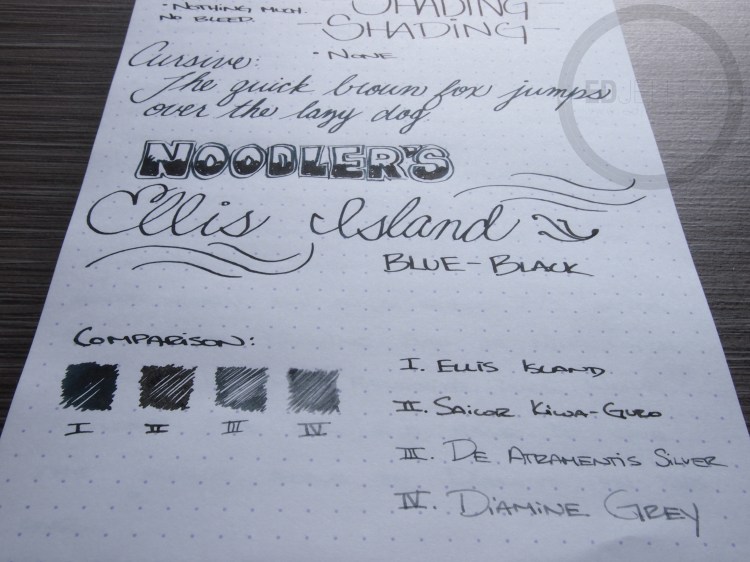 • NOTHING MUCH.
NO BLEED.
SHADING
-SHADING-
• NONE
Cursive:
The quick brown fox jumps
over the lazy dog.
NOODLER'S
Ellis Island
BLUE-BLACK
COMPARISON:
I II III IV
I. ELLIS ISLAND
II. SAILOR KIWA-GURO
III. DE ATRAMENTIS SILVER
IV. DIAMINE GREY